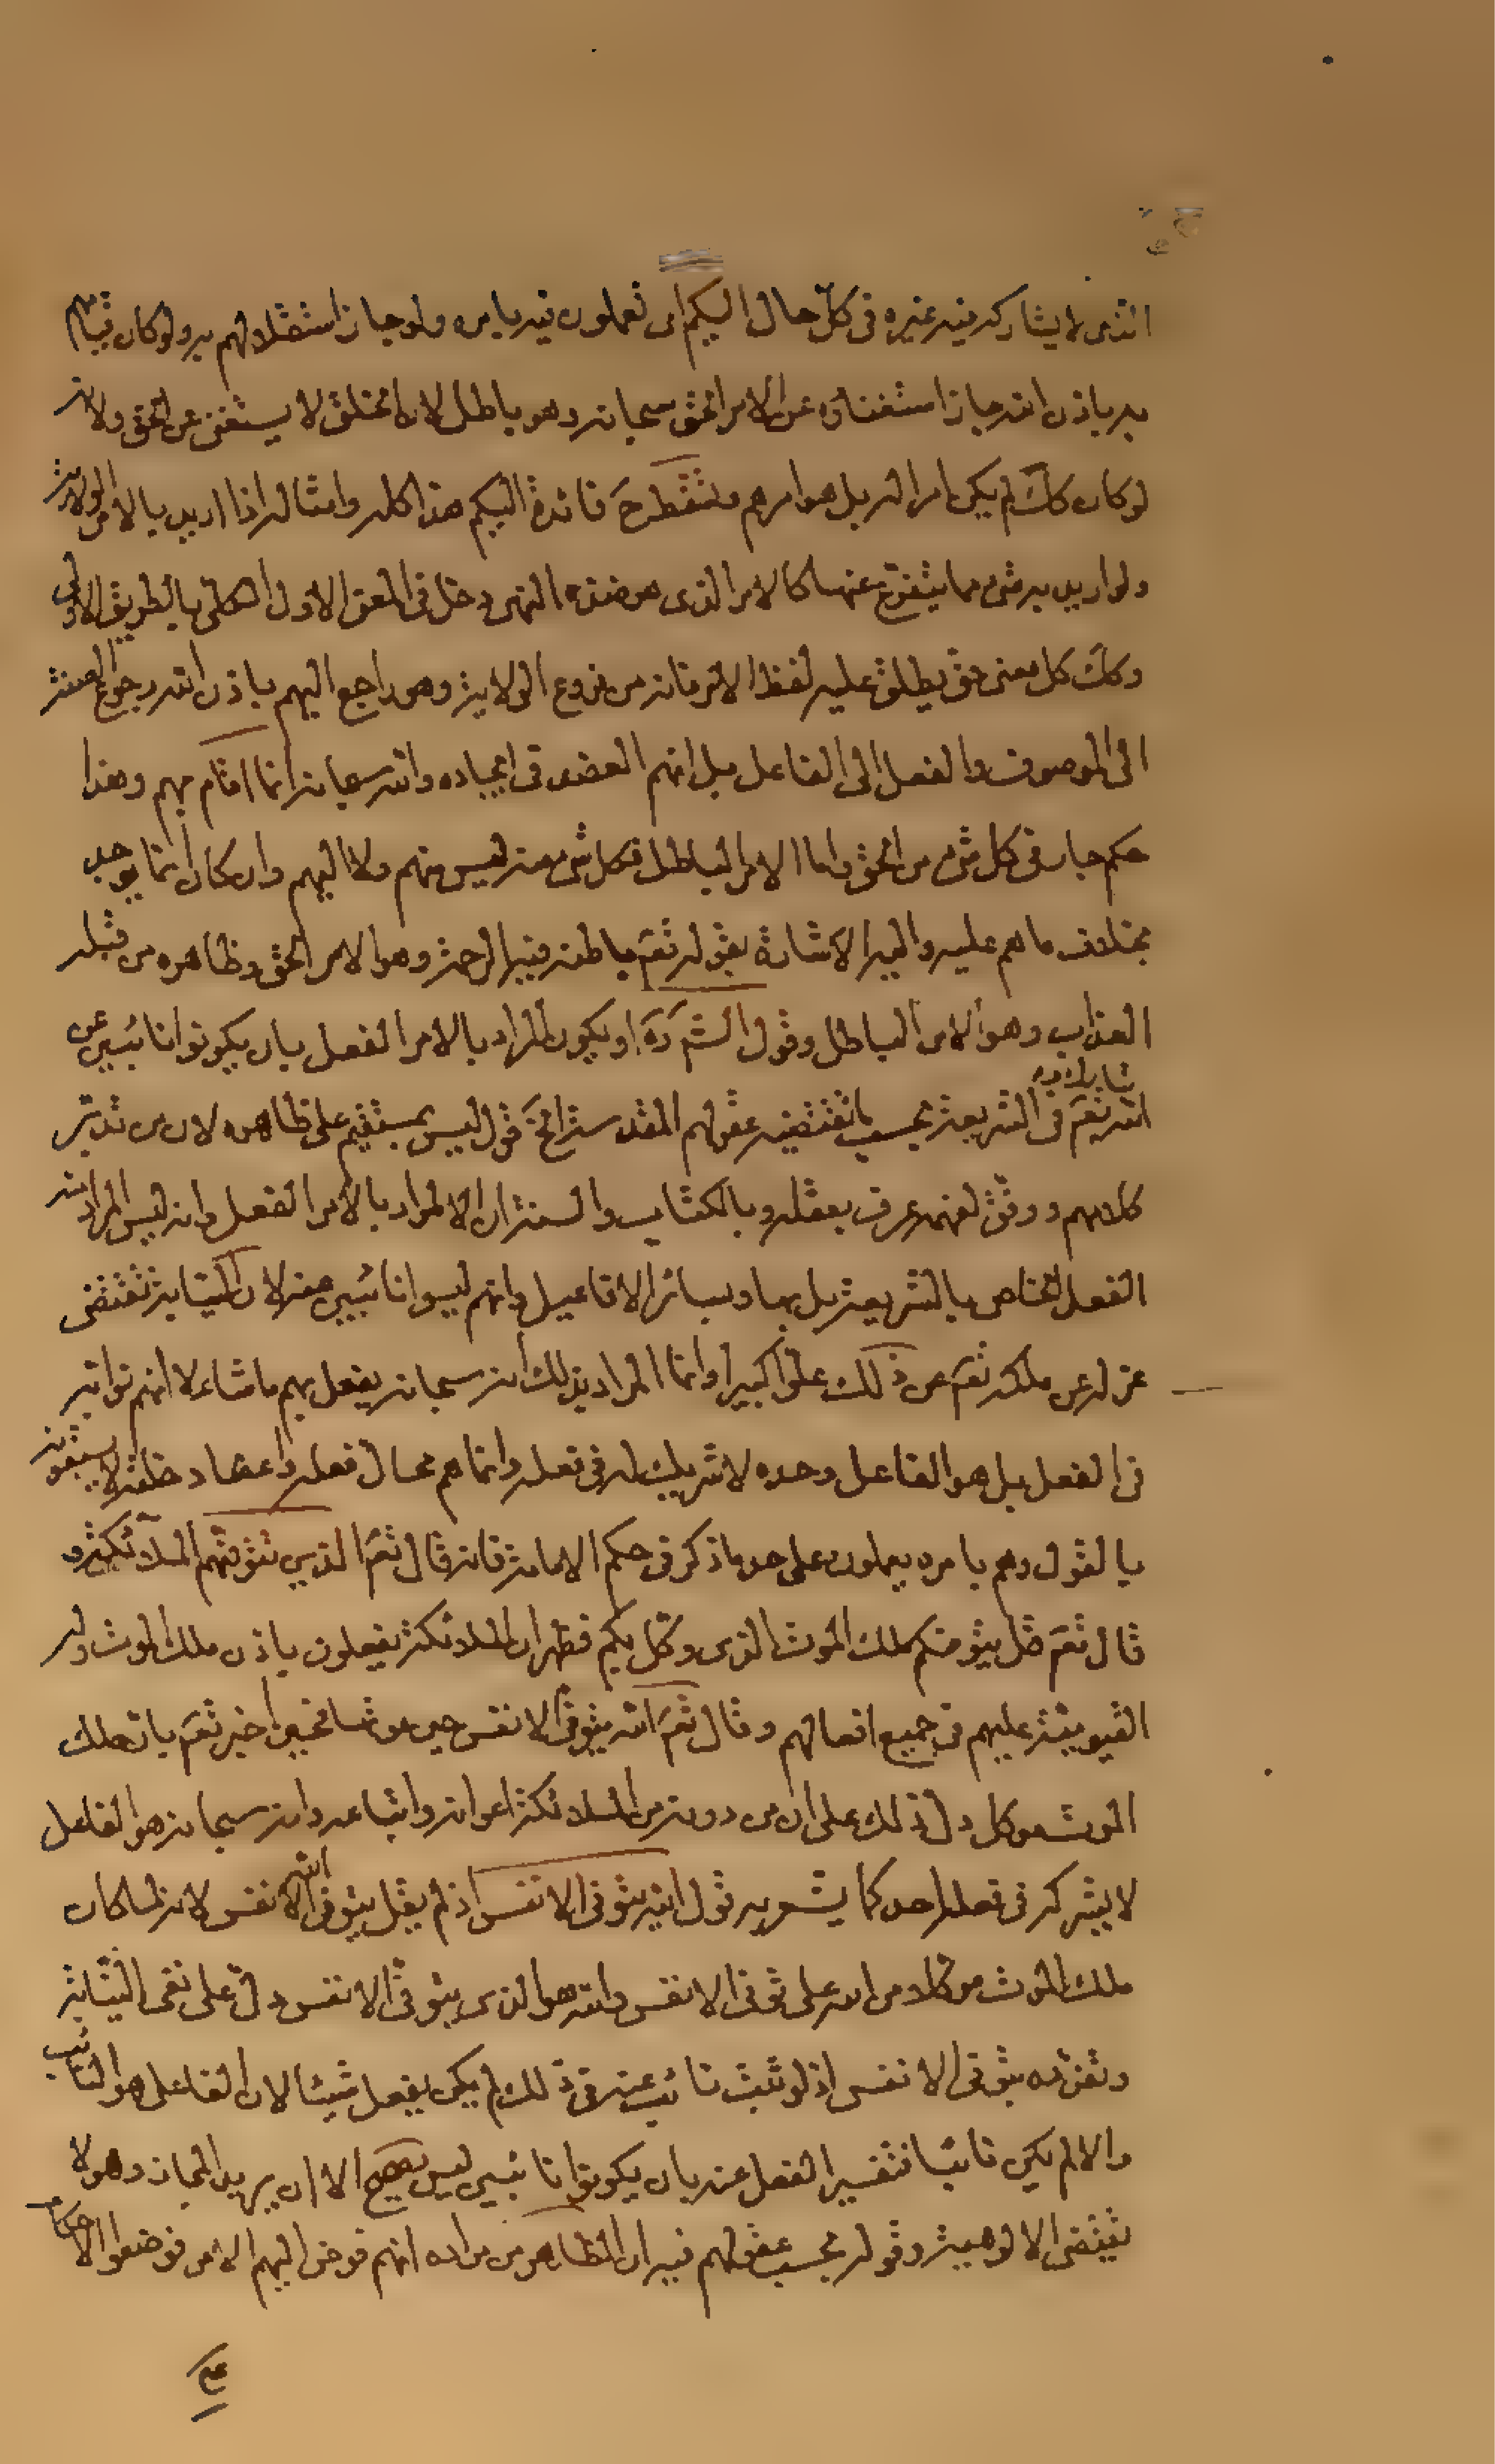 الذى لا يشاركه فيه غيره فى كلّ حال اليكم اى تعملون فيه بامره ولو جاز استقلالهم به ولو كان قيامهم
به باذن الله جاز استغناؤه عن الامر الحق سبحانه وهو باطل لان الخلق لا يستغنى عن الحق ولانه
لو كان كك لم يكن امرا لله بل هو امرهم فائدة اليكم هذا كله وامثاله اذا اريد بالامر الولاية
ولو اريد به شىء مما يتفرع عنها كالامر الذى هو ضد النهى دخل فى المعنى الاول الكلى بالطريق الاولى
وكك كل معنى حق يطلق عليه لفظ الامر فانه من فروع الولاية وهو راجع اليهم باذن الله رجوع الصفة
الى الموصوف والفعل الى الفاعل بل انهم العضد فى ايجاده والله سبحانه انما اقام بهم وهذا
حكم جار فى كل شىء من الحق واما الامر الباطل فكل شىء منه ليس منهم ولا اليهم وان كان انما يوجد
بخلاف ما هم عليه واليه الاشارة بقوله تعم باطنه فيه الرحمة وهو الامر الحق وظاهره من قبله
العذاب وهو الامر الباطل وقول الش ره او يكون المراد بالامر الفعل بان يكونوا نائبين عن
الله تعم فى الشريعة بحسب ما تقتضيه عقولهم المقدسة الخ قول ليس بمستقيم على ظاهره لان من تدبر
كلامهم ووفق لفهمه عرف بعقله وبالكتاب والسنة ان المراد بالامر الفعل وانه ليس المراد منه
الفعل الخاص بالشريعة بل بها وبسائر الافاعيل وانهم ليسوا نائبين عنه لان النيابة تقتضى
عزله عن ملكه تعم عن ذلك علوا كبيرا وانما المراد بذلك انه سبحانه يفعل بهم ما شاء لا انهم نوابه
فى الفعل بل هو الفاعل وحده لا شريك له فى فعله وانما هم محال فعله واعضاد خلقه لا يسبقونه
بالقول وهم بامره يعملون على حد ما ذكر فى حكم الامامة فانه قال تعم الذين تتوفيهم الملائكة و
قال تعم قل يتوفيكم ملك الموت الذى وكل بكم فظهر ان الملائكة يفعلون باذن ملك الموت وله
القيومية عليهم فى جميع افعالهم وقال تعم الله يتوفى الانفس حين موتها فحيث اخبر تعم بان ملك
الموت موكل دل ذلك على ان من دونه من الملائكة اعوانه واتباعه وانه سبحانه هو الفاعل
لا يشركه فى فعله احد كما يشعر به قول الله يتوفى الانفس اذ لم يقل يتوفى الله الانفس لانه لما كان
ملك الموت موكلا من الله على توفى الانفس والله هو الذى يتوفى الانفس دل على نفى النيابة
وتفرده بتوفى الانفس اذ لو ثبت نائب عنه فى ذلك لم يكن يفعل شيئا لان الفاعل هو النائب
والا لم يكن نائبا فتفسير الفعل عنه بان يكونوا نائبين ليس بصحيح الا ان يريد المجاز وهو لا
يقتضى الالوهية وقوله بحسب عقولهم فيه ان الظاهر من مراده انهم فوض اليهم الامر فوضعوا الاحكام